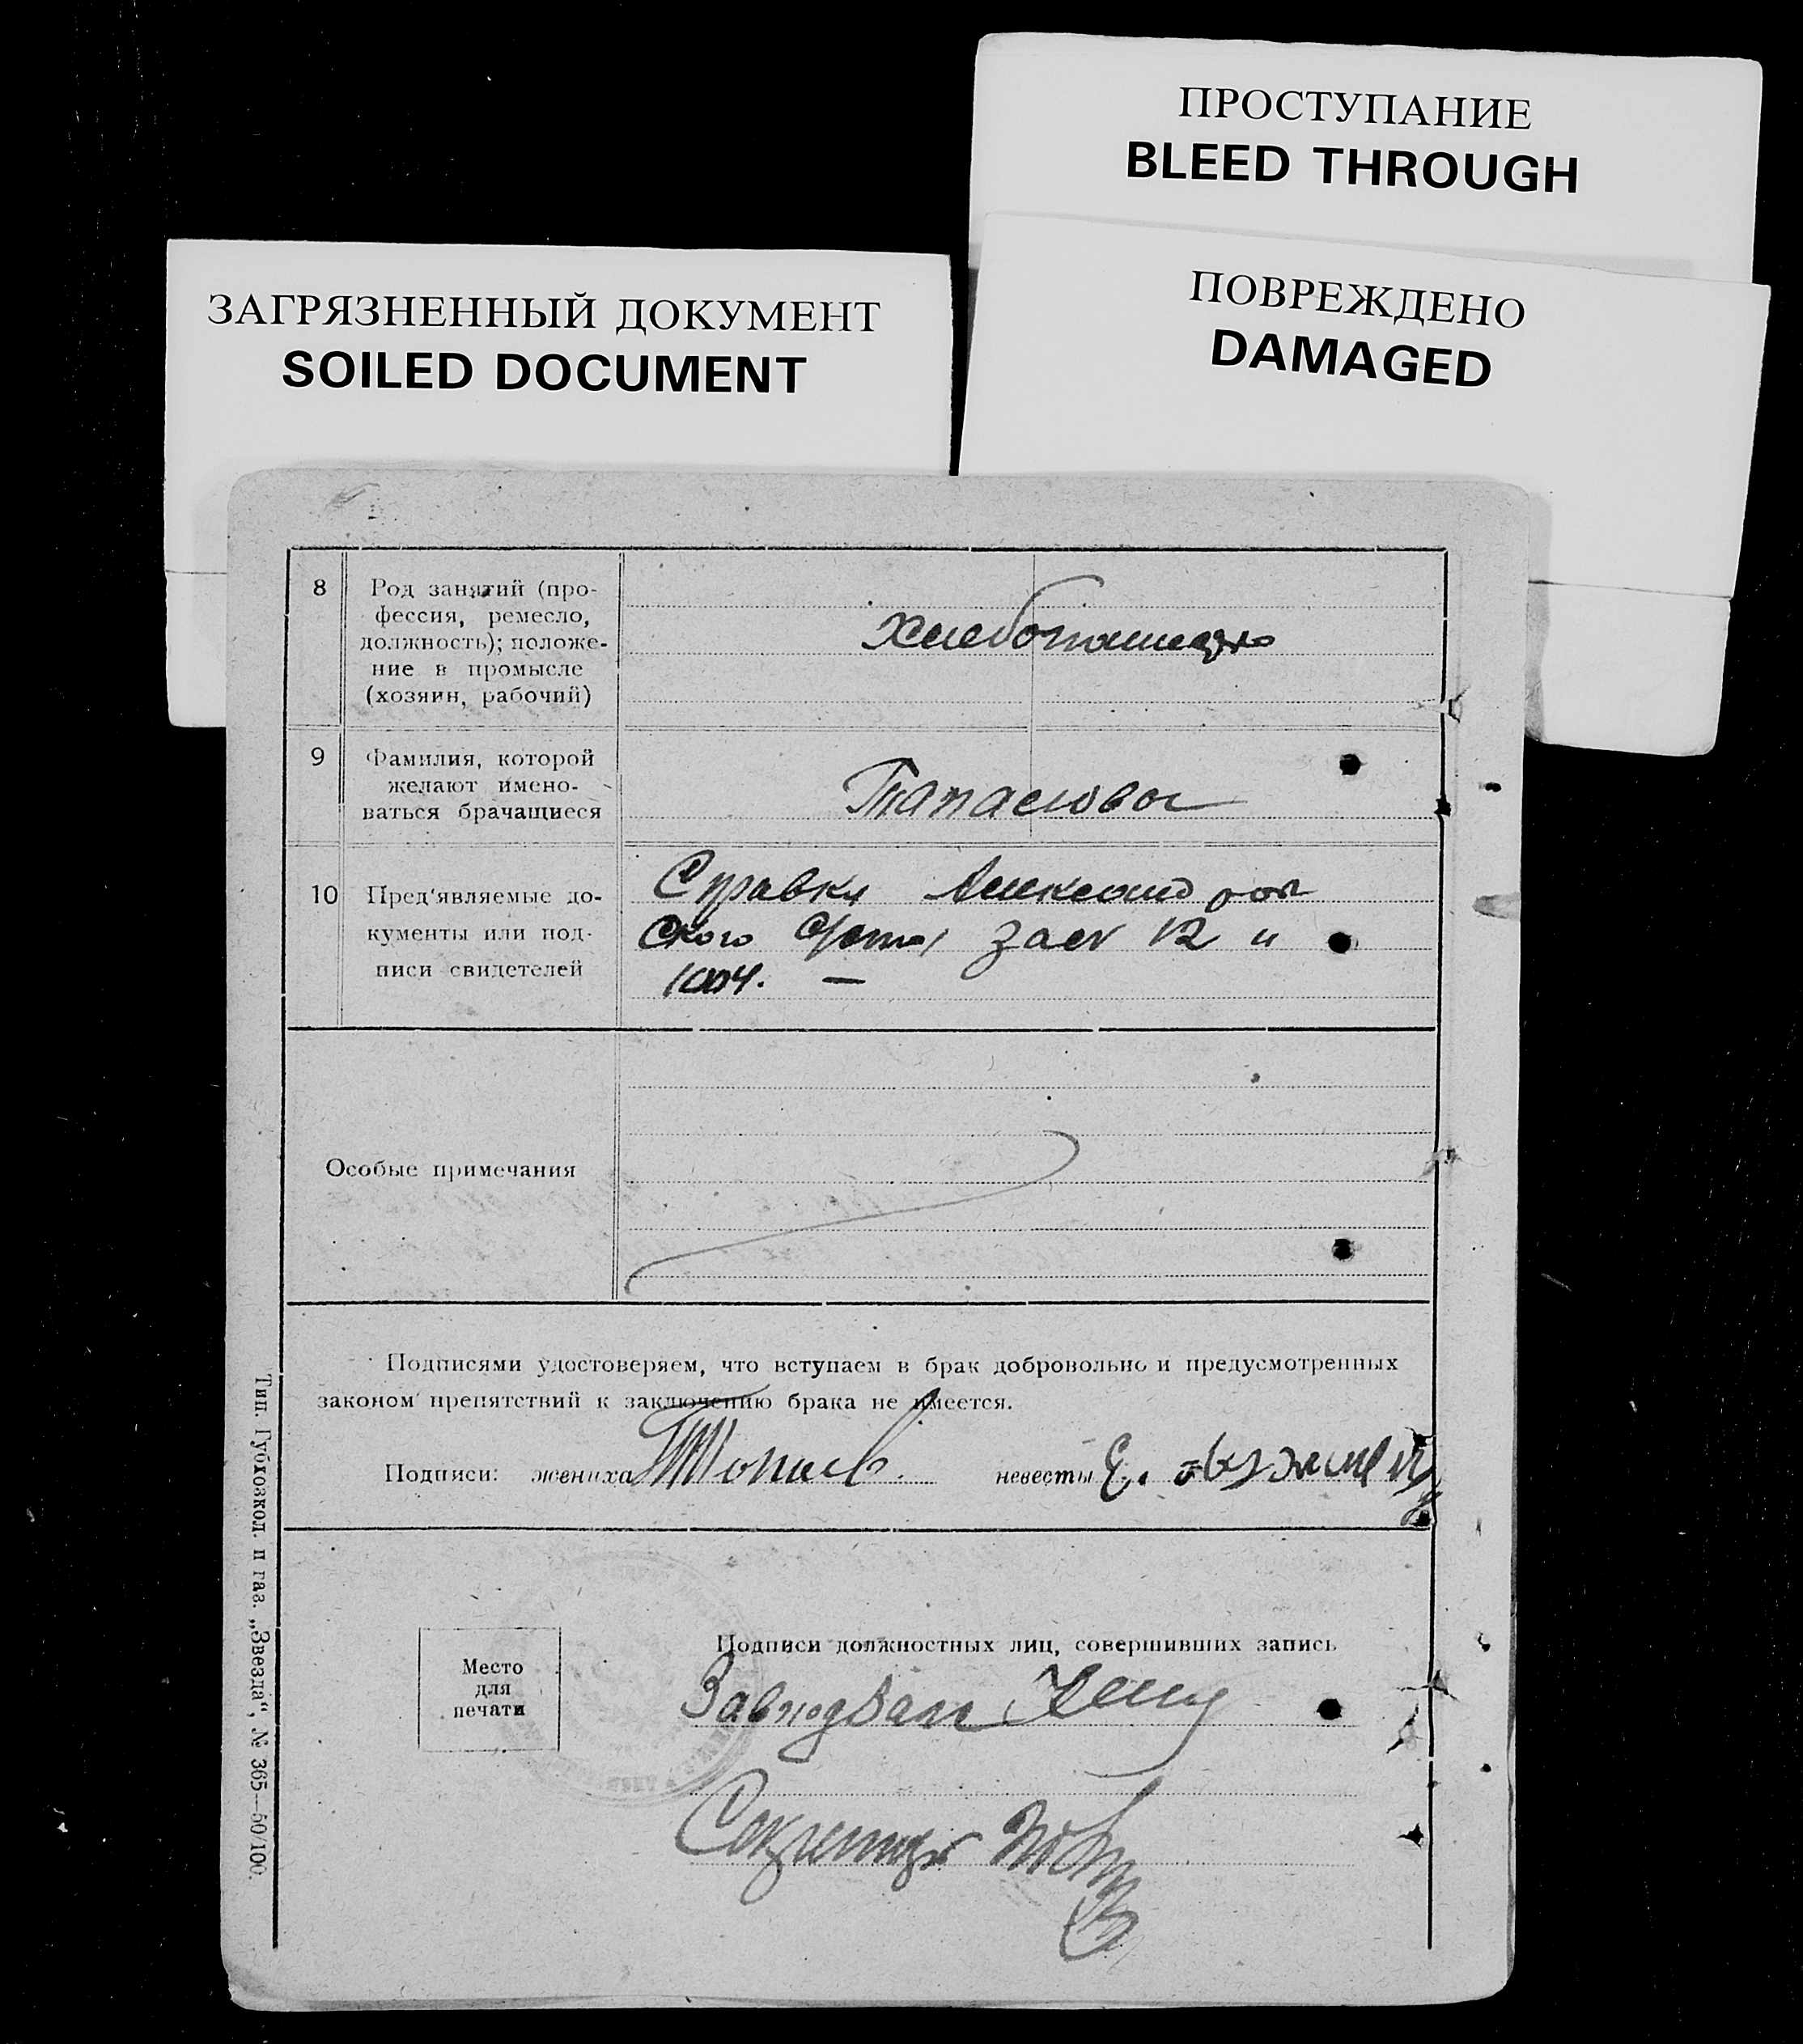 ПРОСТУПАНИЕ
BLEED THROUGH
ЗАГРЯЗНЕННЫЙ ДОКУМЕНТ
SOILED DOCUMENT
ПОВРЕЖДЕНО
DAMAGED
8
Род занятий (про-
фессия, ремесло,
должность); положе-
ние в промысле
(хозяин, рабочий)
9
Фамилия, которой
желают имено-
ваться брачащиеся
10
Пред'являемые до-
кументы или под-
писи свидетелей
Справки
ского 12 и
Особые примечания
Подписями удостоверяем, что вступаем в брак добровольно и предусмотренных
законом препятствий к заключению брака не имеется.
Подписи: жениха невесты Е.
Место
для
печати
Подписи должностных лиц, совершивших запись
Секретарь
Тип. Губвозкол. п газ. „Звезда“, № 365—50/100.